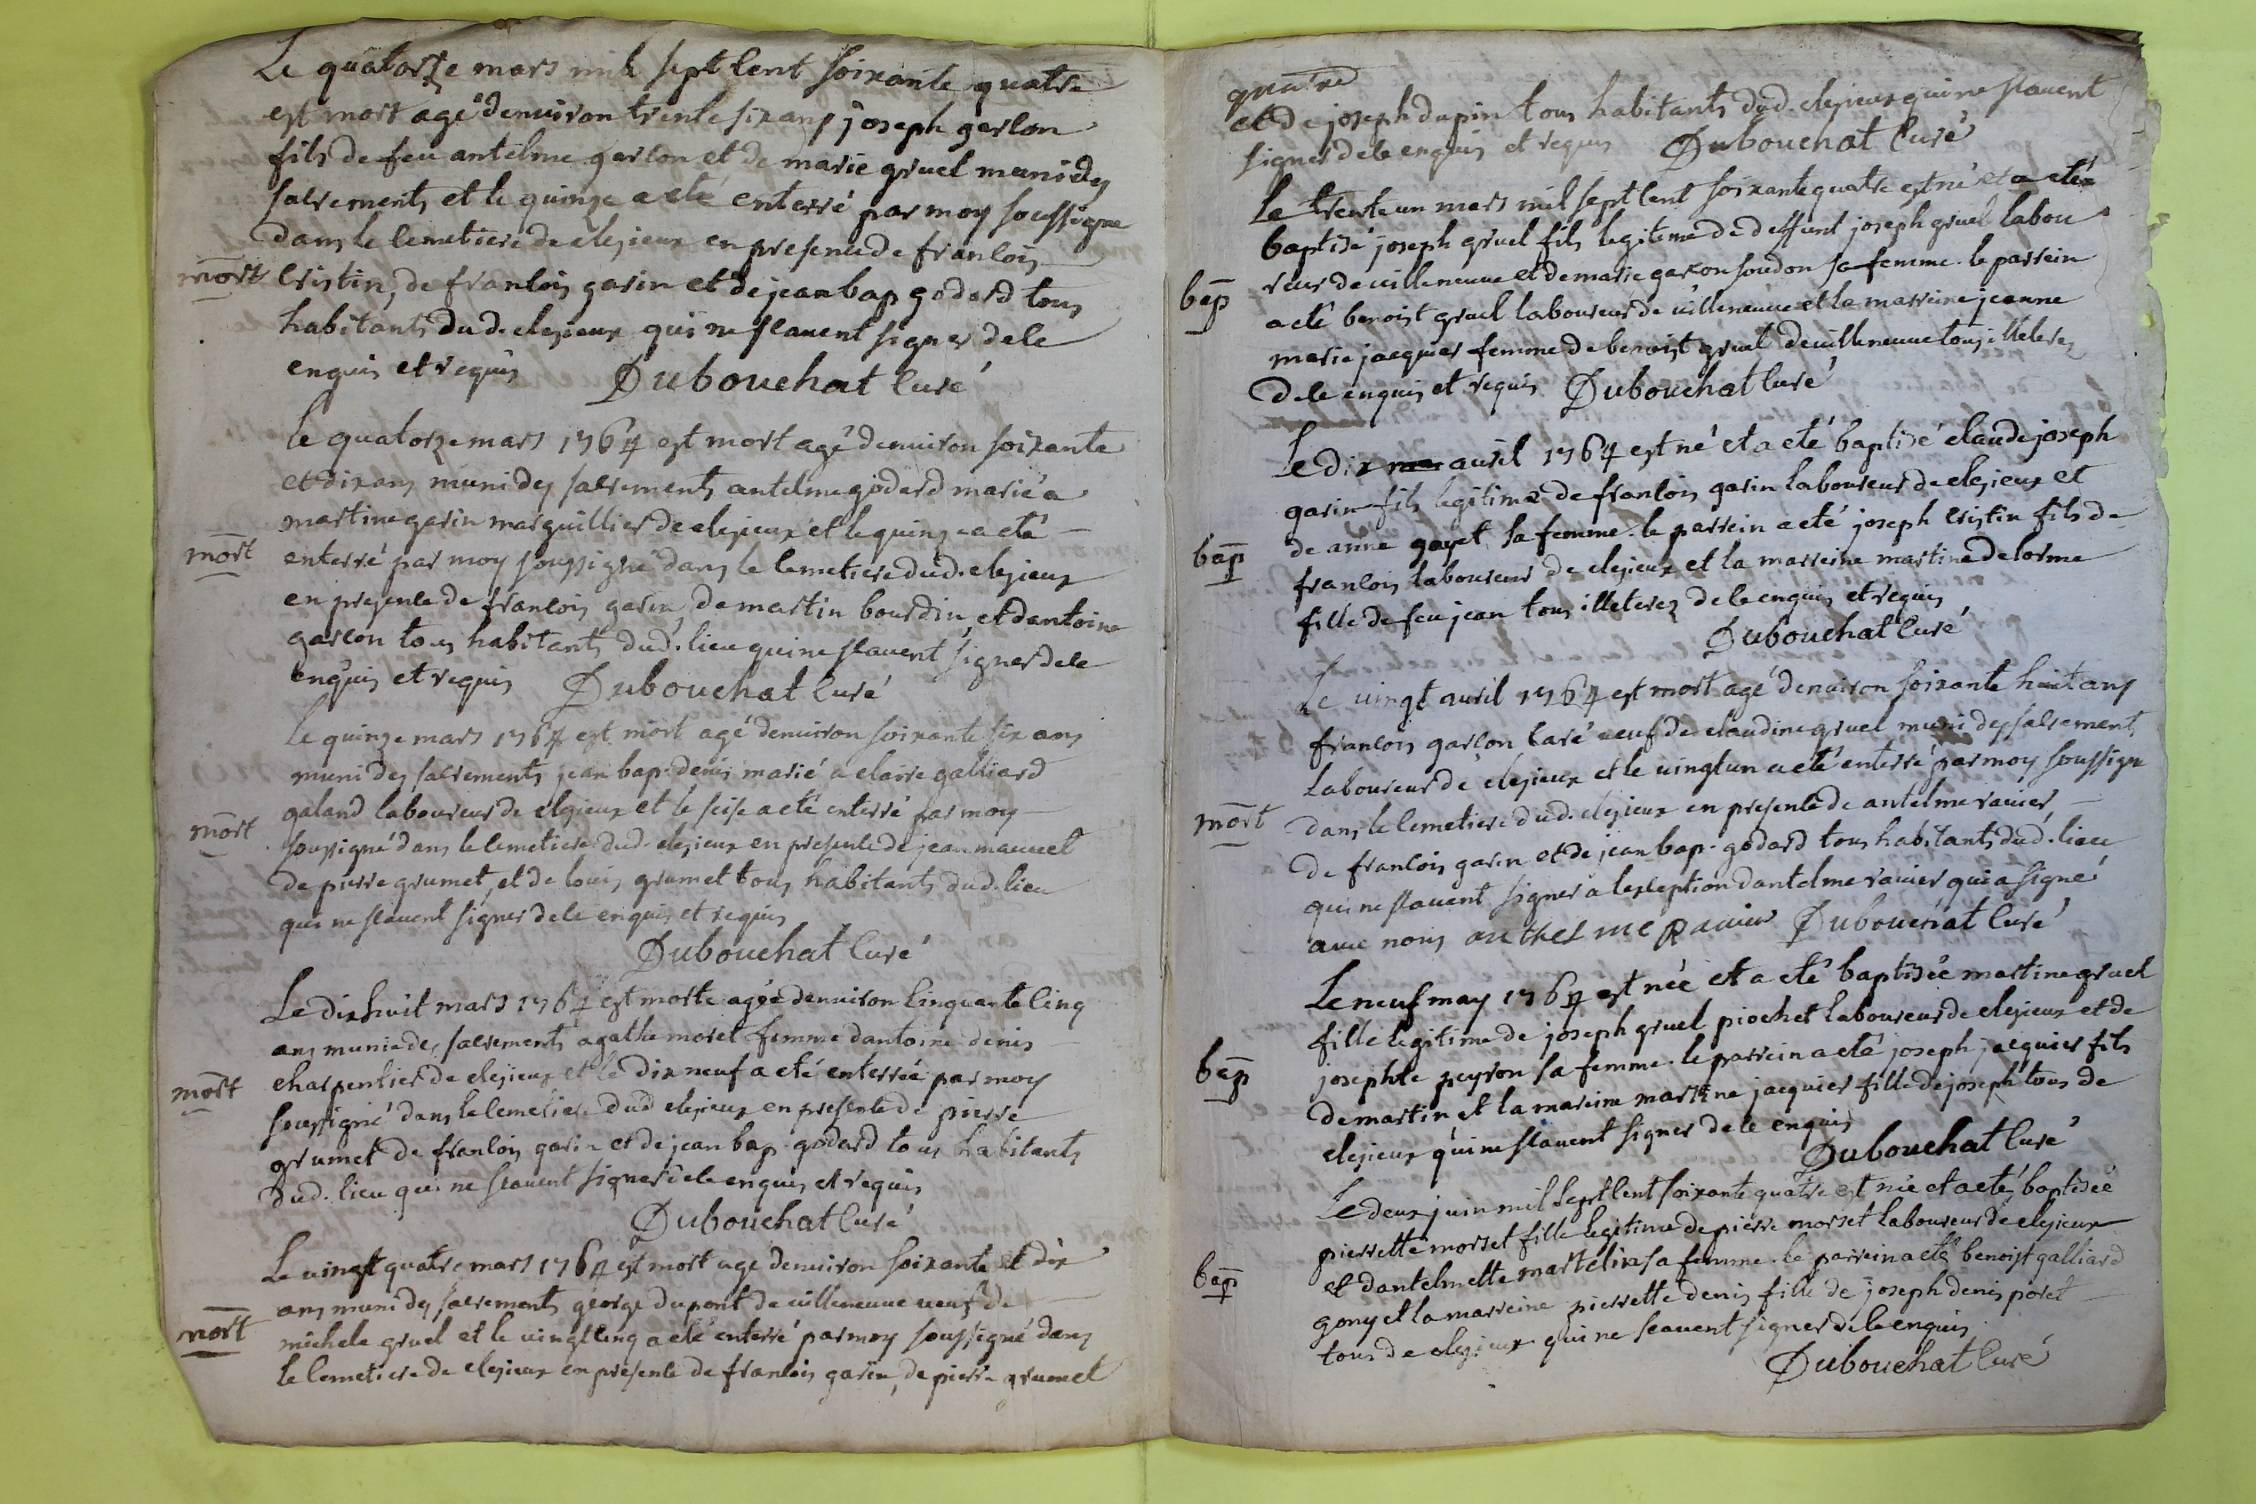 Le quatorze mars mil sept cent soixante quatre
est mort agé denuiron trente six ans joseph garçon
fils de feu antelme garçon et de marie gruel muni des
sacrements et le quinze a eté enterré par moy soussigne
dans le cemetiere de cleyieux en presence de francois
mort cristin, de francois garin et de jean bap godard tous
habitants dud. cleyieux qui ne scauent signer de ce
enquis et requis Dubouchat curé
le quatorze mars 1764 est mort agé denuiron soixante
et dix ans muni des sacrements antelme godard marié a
martine garin marguillier de cleyieux et le quinze a eté
mort enterré par moy soussigné dans le cemetiere dud. cleyieux
en presence de francois garin, de martin bourdin, et dantoine
garcon tous habitants dud. lieu qui ne scauent signer de ce
enquis et requis Dubouchat curé
le quinze mars 1764 est mort agé denuiron soixante six ans
muni des sacrements jean bap. denis marié a claire galliard
galand laboureur de cleyieux et le seise a eté enterré par moy
mort soussigné dans le cemetiere dud. cleyieux en presence de jean
de pierre grumet, et de louis grumet tous habitants dud. lieu
qui ne scauent signer de ce enquis et requis
Dubouchat curé
Le dix huit mars 1764 est morte agée denuiron cinquante cinq
ans munie des sacrements agathe moret femme dantoine denis
mort charpentier de cleyieux et le dix neuf a eté enterrée par moy
soussigné dans le cemetiere dud cleyieux en presence de pierre
grumet de francois garin et de jean bap. godard tous habitants
dud. lieu qui ne scauent signer de ce enquis et requis
Dubouchat curé
Le uingt quatre mars 1764 est mort agé denuiron soixante et dix
ans muni des sacrements george dupont de uilleneuue ueuf de
mort michele gruel et le uingt cinq a eté enterré par moy soussigné dans
le cemetiere de cleyieux en presence de francois garin, de pierre grumet
quatre
et de joseph dupin tous habitants dud. cleyieux qui ne scauent
signer de ce enquis et requis Dubouchat curé
Le trente un mars mil sept cent soixante quatre est né et a eté
baptisé joseph gruel fils legitime de deffunt joseph gruel labou
bap reur de uilleneuue et de marie garçon sa femme. le parrein
a eté benoist gruel laboureur de uilleneuue et la marreine jeanne
marie jacquier femme de benoist gruel de uilleneuue tous illeterez
de ce enquis et requis Dubouchat curé
Le dix auril 1764 est né et a eté baptisé claude joseph
garin fils legitime de francois garin laboureur de cleyieux et
bap de anne goyet sa femme. le parrein a eté joseph cristin fils de
francois laboureur de cleyieux et la marreine martine delorme
fille de feu jean tous illeterez de ce enquis et requis
Dubouchat curé
Le uingt auril 1764 est mort agé denuiron soixante huit ans
francois garçon caré ueuf de claudine gruel muni des sacrements
laboureur de cleyieux et le uingt un a eté enterré par moy soussigne
mort dans le cemetiere dud. cleyieux en presence de antelme rauier
de francois garin et de jean bap. godard tous habitants dud. lieu
qui ne scauent signer a lexception dantelme rauier qui a signé
auec nous anthelme Rauier Dubouchat curé
Le neuf may 1764 est née et a eté baptisée martine gruel
fille legitime de joseph gruel piochet laboureur de cleyieux et de
bap josephte peyron sa femme. le parrein a eté joseph jacquier fils
de martin et la mareine martine jacquier fille de joseph tous de
cleyieux qui ne scauent signer de ce enquis
Dubouchat curé
Le deux juin mil sept cent soixante quatre est née et a eté baptisée
pierrette morset fille legitime de pierre morset laboureur de cleyieux
bap et dantelmette martelin sa femme. le parrein a eté benoist galliard
gony et la marreine pierrette denis fille de joseph denis poret
tous de cleyieux qui ne scauent signer de ce enquis
Dubouchat curé